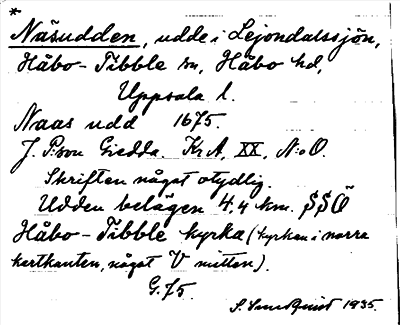 *
Näsudden, udde i Lejondalssjön,
Håbo-Tibble sn, Håbo hd,
Uppsala l.
Naas udd 1675.
J. P:son Giedda. KrA, XX, N:o O.
Skriften något otydlig.
Udden belägen 4,4 km. SSÖ
Håbo-Tibble kyrka (kyrkan i norra
kartkanten, något V mitten).
G. 75.
S. Sundquist 1935.